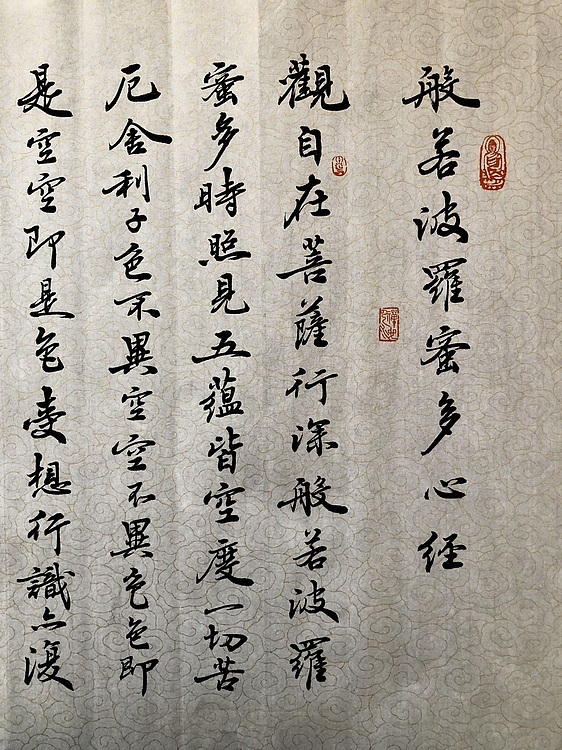 般若波羅蜜多心經
觀自在菩薩行深般若波羅
蜜多時照見五蘊皆空度一切苦
厄舍利子色不異空空不異色色即
是空空即是色受想行識亦復